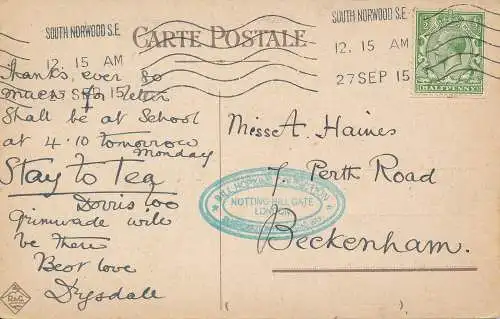 SOUTH NORWOOD S.E.
12. 15 AM
27 SEP 15
CARTE POSTALE
SOUTH NORWOOD S.E.
12. 15 AM
27 SEP 15
HALFPENNY
Thanks ever so
much for letter
Shall be at School
at 4.10 tomorrow
Monday
Stay to Tea
Dorris too
Grimwade will
be there
Best love
Drysdale
Messe A. Haines
7, Perth Road
Beckenham.
NOTTING HILL GATE
LONDON